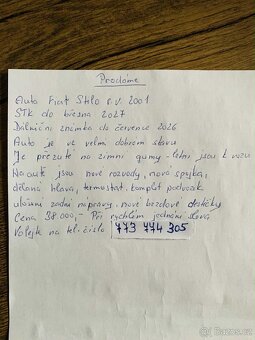 Prodáme
Auto Fiat Stilo r.v. 2001
STK do března 2027
Dálniční známka do července 2026
Auto je ve velmi dobrém stavu
Je přezuté na zimní gumy - letní jsou k vozu
Na autě jsou nové rozvody, nová spojka,
dělaná hlava, termostat, komplet podvozek
uložení zadní nápravy, nové brzdové destičky
Cena 38 000,- Při rychlém jednání sleva
Volejte na tel. číslo 773 774 305
Bazoš.cz